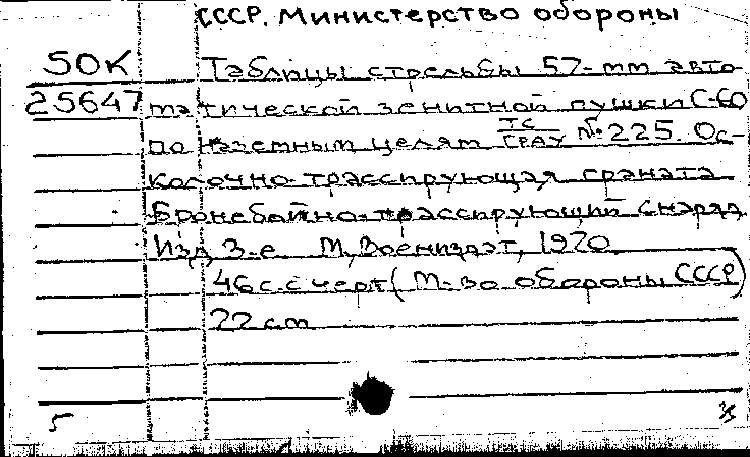 СССР. Министерство обороны
50К Таблицы стрельбы 57-мм авто-
25647 матической зенитной пушки С-60
по наземным целям ТС/ГРАУ № 225. Ос-
колочно-трассирующая граната
Бронебойно-трассирующий снаряд.
Изд 3-е. М., Воениздат, 1970.
46 с. с черт (М-во обороны СССР)
22 см
5